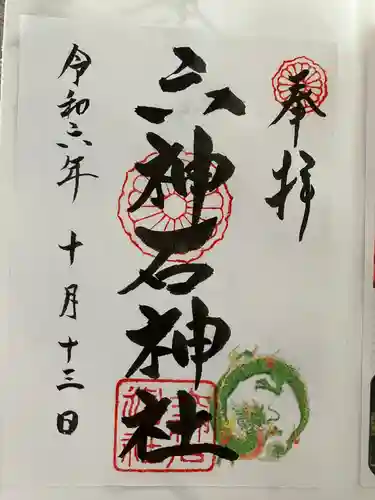 奉拝
六神石神社
令和六年 十月十三日